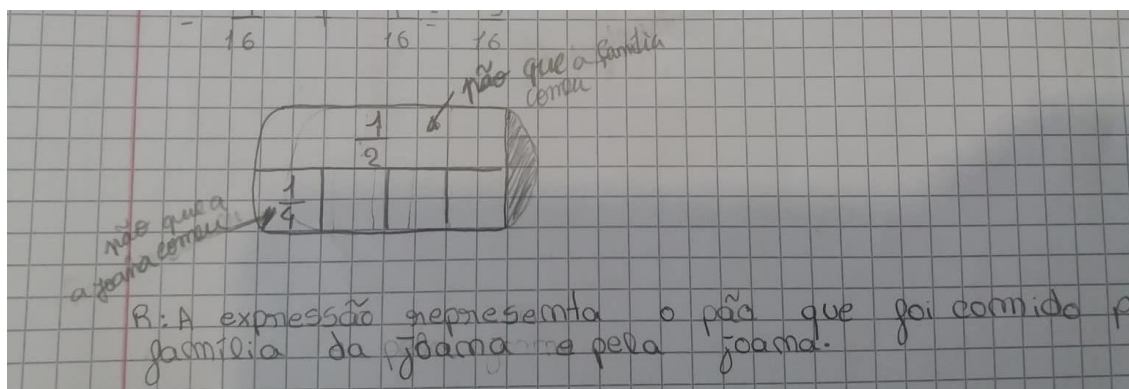 16 16 = 16
pão que a família
comeu
1
2
1
4
pão que a
a Joana comeu
R: A expressão representa o pão que foi comido p
família da Joana e pela Joana.